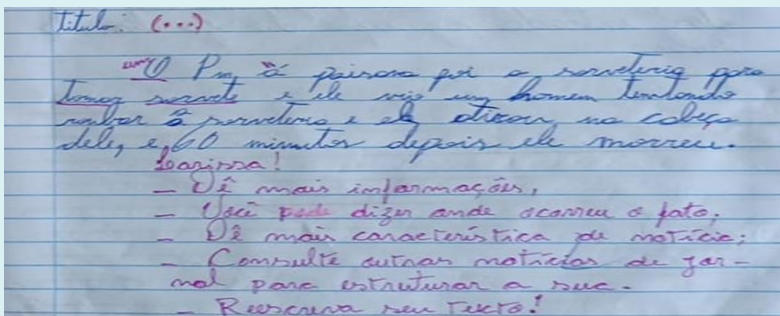 titulo: (...)
um O Pm, à paisana foi a sorveteria para
tomar sorvete e ele viu um homem tentando
roubar à sorveteria e ele atirou na cabeça
dele, e 60 minutos depois ele morreu.
Larissa!
- Dê mais informações,
- Você pode dizer onde ocorreu o fato;
- Dê mais característica de notícia;
- Consulte outras notícias de jor-
nal para estruturar a sua.
- Reescreva seu texto!